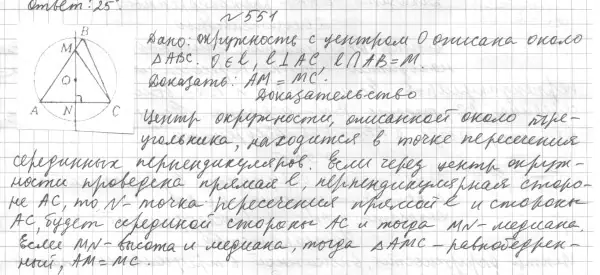 Ответ: 25°
№551
B
M
O
A N C
Дано: окружность с центром O описана около
ΔABC. O∈ℓ, ℓ⊥AC, ℓ∩AB=M.
Доказать: AM=MC.
Доказательство
Центр окружности, описанной около тре-
угольника, находится в точке пересечения
серединных перпендикуляров. Если через центр окруж-
ности проведена прямая ℓ, перпендикулярная сторо-
не AC, то N-точка пересечения прямой ℓ и стороны
AC, будет серединой стороны AC и тогда MN-медиана.
Если MN-высота и медиана, тогда ΔAMC-равнобедрен-
ный, AM=MC.